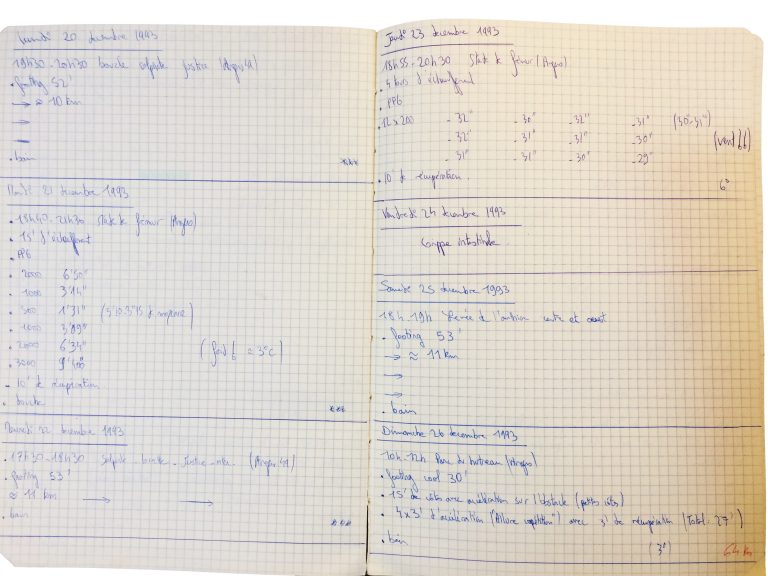 Lundi 20 décembre 1993
19h30 - 20h30 boucle justice (Angers 49)
. footing 52'
→ ≈ 10 km
→
→
. bain
***
Mardi 21 décembre 1993
. 18h40 - 21h30 Stade de frémur (Angers)
. 15' d'échauffement
. PPG
. 2000 6'50"
. 1000 3'14"
. 500 1'31"
. 1000 3'09"
. 2000 6'34" (froid ≈ 3°C)
. 3000
- 10' de récupération
. douche
***
Mercredi 22 décembre 1993
. 17h30 - 18h30 justice (Angers 49)
. footing 53'
≈ 11 km → →
. bain
***
Jeudi 23 décembre 1993
18h55 - 20h30 Stade de frémur (Angers)
. 4 tours d'échauffement
. PPG
. 12 x 200 - 32" - 30" - 32" - 31" (30"-31")
- 32" - 31" - 31" - 30" (vent)
- 31" - 31" - 30" - 29"
. 10' de récupération
6°
Vendredi 24 décembre 1993
Grippe intestinale
Samedi 25 décembre 1993
18h - 19h levée de l'Authion
. footing 53'
→ ≈ 11 km
→
→
. bain
Dimanche 26 décembre 1993
10h-12h Parc du hutreau (Angers)
. footing cool 30'
. 15' de côtes avec accélération sur l'obstacle (petites côtes)
. 4x3' d'accélération ("Allure compétition") avec 3' de récupération (Total: 27')
. bain
(3°) 64 km